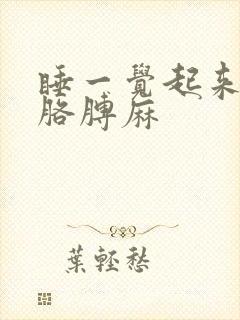 睡一覺起來
胳膊麻
葉輕愁